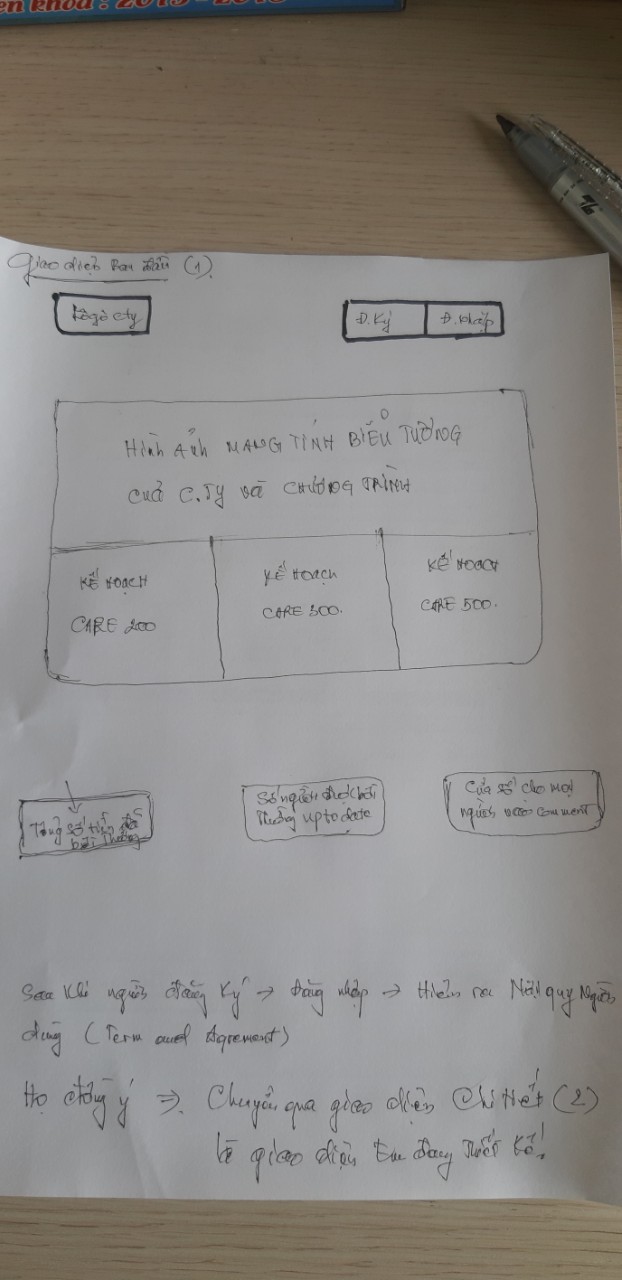 khóa : 2015 - 2018
Giao diện Ban đầu (1)
Lôgô cty
Đ. Ký
Đ. nhập
Hình Ảnh MANG TÍNH BIỂU TƯỢNG
CỦA C.TY VÀ CHƯƠNG TRÌNH
KẾ HOẠCH
CARE 200
KẾ HOẠCH
CARE 300.
KẾ HOẠCH
CARE 500.
Tổng số tiền đã
bồi thường
Số người được bồi
thường up to date
Cửa sổ cho mọi
người vào comment
Sau khi người đăng ký → Đăng nhập → Hiển ra Nội quy Người
dùng (Term and Agrement)
Họ đồng ý ⇒ Chuyển qua giao diện Chi tiết (2)
là giao diện Em đang thiết kế!